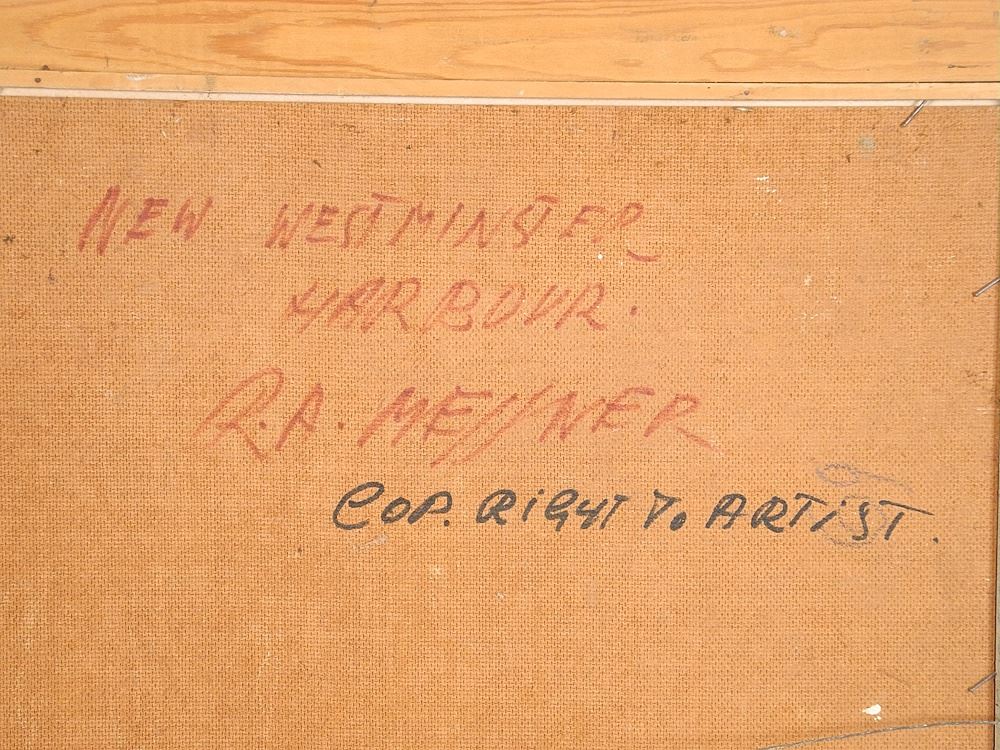 NEW WESTMINSTER
HARBOUR.
R.A. MESSNER
COP. RiGHT To ARTiST.